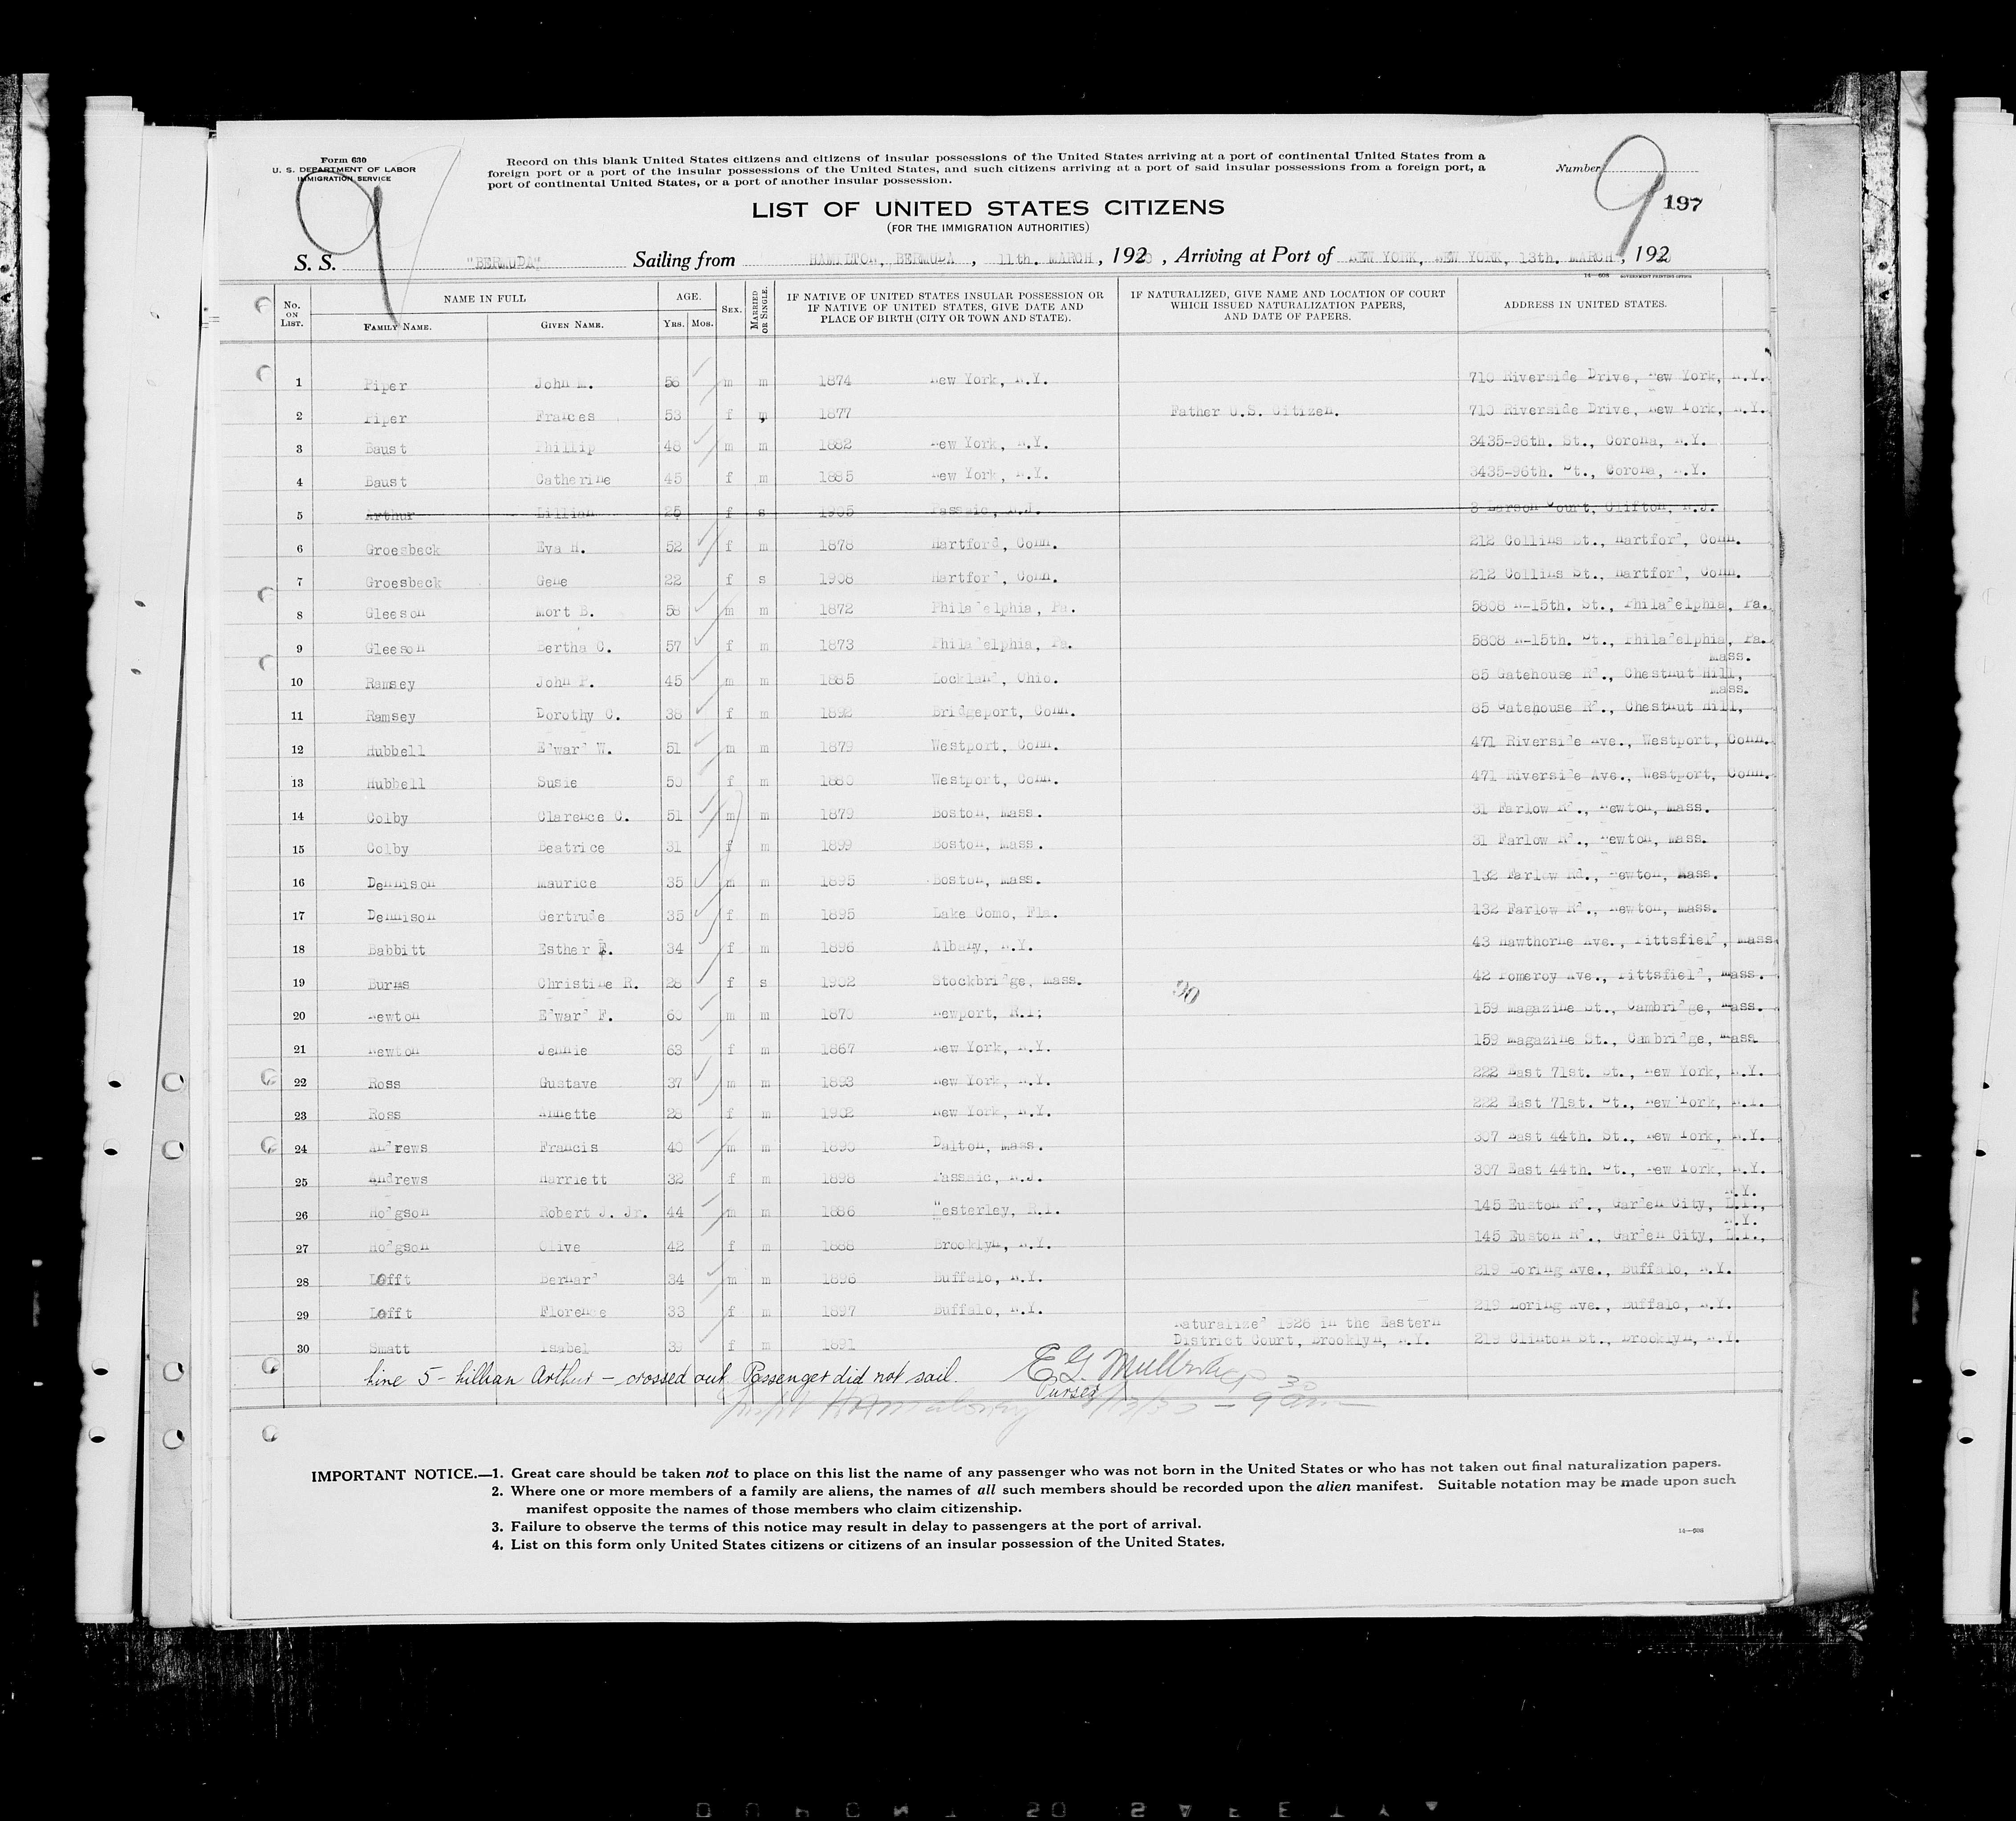 Form 630
U. S. DEPARTMENT OF LABOR
IMMIGRATION SERVICE
9
Record on this blank United States citizens and citizens of insular possessions of the United States arriving at a port of continental United States from a
foreign port or a port of the insular possessions of the United States, and such citizens arriving at a port of said insular possessions from a foreign port, a
port of continental United States, or a port of another insular possession.
Number
9
197
LIST OF UNITED STATES CITIZENS
(FOR THE IMMIGRATION AUTHORITIES)
S. S. "BERMUDA" Sailing from HAMILTON, BERMUDA , 11th. MARCH , 1920 , Arriving at Port of NEW YORK, NEW YORK, 13th. MARCH , 192
14—608 GOVERNMENT PRINTING OFFICE
No. ON LIST. NAME IN FULL FAMILY NAME. GIVEN NAME. AGE. YRS. MOS. SEX. MARRIED OR SINGLE. IF NATIVE OF UNITED STATES INSULAR POSSESSION OR IF NATIVE OF UNITED STATES, GIVE DATE AND PLACE OF BIRTH (CITY OR TOWN AND STATE). IF NATURALIZED, GIVE NAME AND LOCATION OF COURT WHICH ISSUED NATURALIZATION PAPERS, AND DATE OF PAPERS. ADDRESS IN UNITED STATES.
1 Piper John M. 56 m m 1874 New York, N.Y. 710 Riverside Drive, New York, N.Y.
2 Piper Frances 53 f m 1877 Father U.S. Citizen. 710 Riverside Drive, New York, N.Y.
3 Baust Phillip 48 m m 1882 New York, N.Y. 3435-96th. St., Corona, N.Y.
4 Baust Catherine 45 f m 1885 New York, N.Y. 3435-96th. St., Corona, N.Y.
5 Arthur Lillian 25 f s 1905 Passaic, N.J. 8 Larson Court, Clifton, N.J.
6 Groesbeck Eva H. 52 f m 1878 Hartford, Conn. 212 Collins St., Hartford, Conn.
7 Groesbeck Gene 22 f s 1908 Hartford, Conn. 212 Collins St., Hartford, Conn.
8 Gleeson Mort B. 58 m m 1872 Philadelphia, Pa. 5808 N-15th. St., Philadelphia, Pa.
9 Gleeson Bertha C. 57 f m 1873 Philadelphia, Pa. 5808 N-15th. St., Philadelphia, Pa.
10 Ramsey John P. 45 m m 1885 Lockland, Ohio. 85 Gatehouse Rd., Chestnut Hill, Mass.
11 Ramsey Dorothy C. 38 f m 1892 Bridgeport, Conn. 85 Gatehouse Rd., Chestnut Hill, Mass.
12 Hubbell Edward W. 51 m m 1879 Westport, Conn. 471 Riverside Ave., Westport, Conn.
13 Hubbell Susie 50 f m 1880 Westport, Conn. 471 Riverside Ave., Westport, Conn.
14 Colby Clarence C. 51 m m 1879 Boston, Mass. 31 Farlow Rd., Newton, Mass.
15 Colby Beatrice 31 f m 1899 Boston, Mass. 31 Farlow Rd., Newton, Mass.
16 Dennison Maurice 35 m m 1895 Boston, Mass. 132 Farlow Rd., Newton, Mass.
17 Dennison Gertrude 35 f m 1895 Lake Como, Fla. 132 Farlow Rd., Newton, Mass.
18 Babbitt Esther F. 34 f m 1896 Albany, N.Y. 43 Hawthorne Ave., Pittsfield, Mass
19 Burns Christine R. 28 f s 1902 Stockbridge, Mass. 42 Pomeroy Ave., Pittsfield, Mass.
20 Newton Edward F. 60 m m 1870 Newport, R.I. 159 Magazine St., Cambridge, Mass.
21 Newton Jennie 63 f m 1867 New York, N.Y. 159 Magazine St., Cambridge, Mass
22 Ross Gustave 37 m m 1893 New York, N.Y. 222 East 71st. St., New York, N.Y.
23 Ross Annette 28 f m 1902 New York, N.Y. 222 East 71st. St., New York, N.Y.
24 Andrews Francis 40 m m 1890 Dalton, Mass. 307 East 44th. St., New York, N.Y.
25 Andrews Harriett 32 f m 1898 Passaic, N.J. 307 East 44th. St., New York, N.Y.
26 Hodgson Robert J. Jr. 44 m m 1886 Westerley, R.I. 145 Euston Rd., Garden City, L.I., N.Y.
27 Hodgson Olive 42 f m 1888 Brooklyn, N.Y. 145 Euston Rd., Garden City, L.I., N.Y.
28 Lofft Bernard 34 m m 1896 Buffalo, N.Y. 219 Loring Ave., Buffalo, N.Y.
29 Lofft Florence 33 f m 1897 Buffalo, N.Y. 219 Loring Ave., Buffalo, N.Y.
30 Smatt Isabel 39 f m 1891 Naturalized 1926 in the Eastern District Court, Brooklyn, N.Y. 219 Clinton St., Brooklyn, N.Y.
Line 5 - Lillian Arthur - crossed out Passenger did not sail.
Purser
IMPORTANT NOTICE.—1. Great care should be taken not to place on this list the name of any passenger who was not born in the United States or who has not taken out final naturalization papers.
2. Where one or more members of a family are aliens, the names of all such members should be recorded upon the alien manifest. Suitable notation may be made upon such
manifest opposite the names of those members who claim citizenship.
3. Failure to observe the terms of this notice may result in delay to passengers at the port of arrival.
4. List on this form only United States citizens or citizens of an insular possession of the United States.
14—608
DUPONT 50 SAFETY